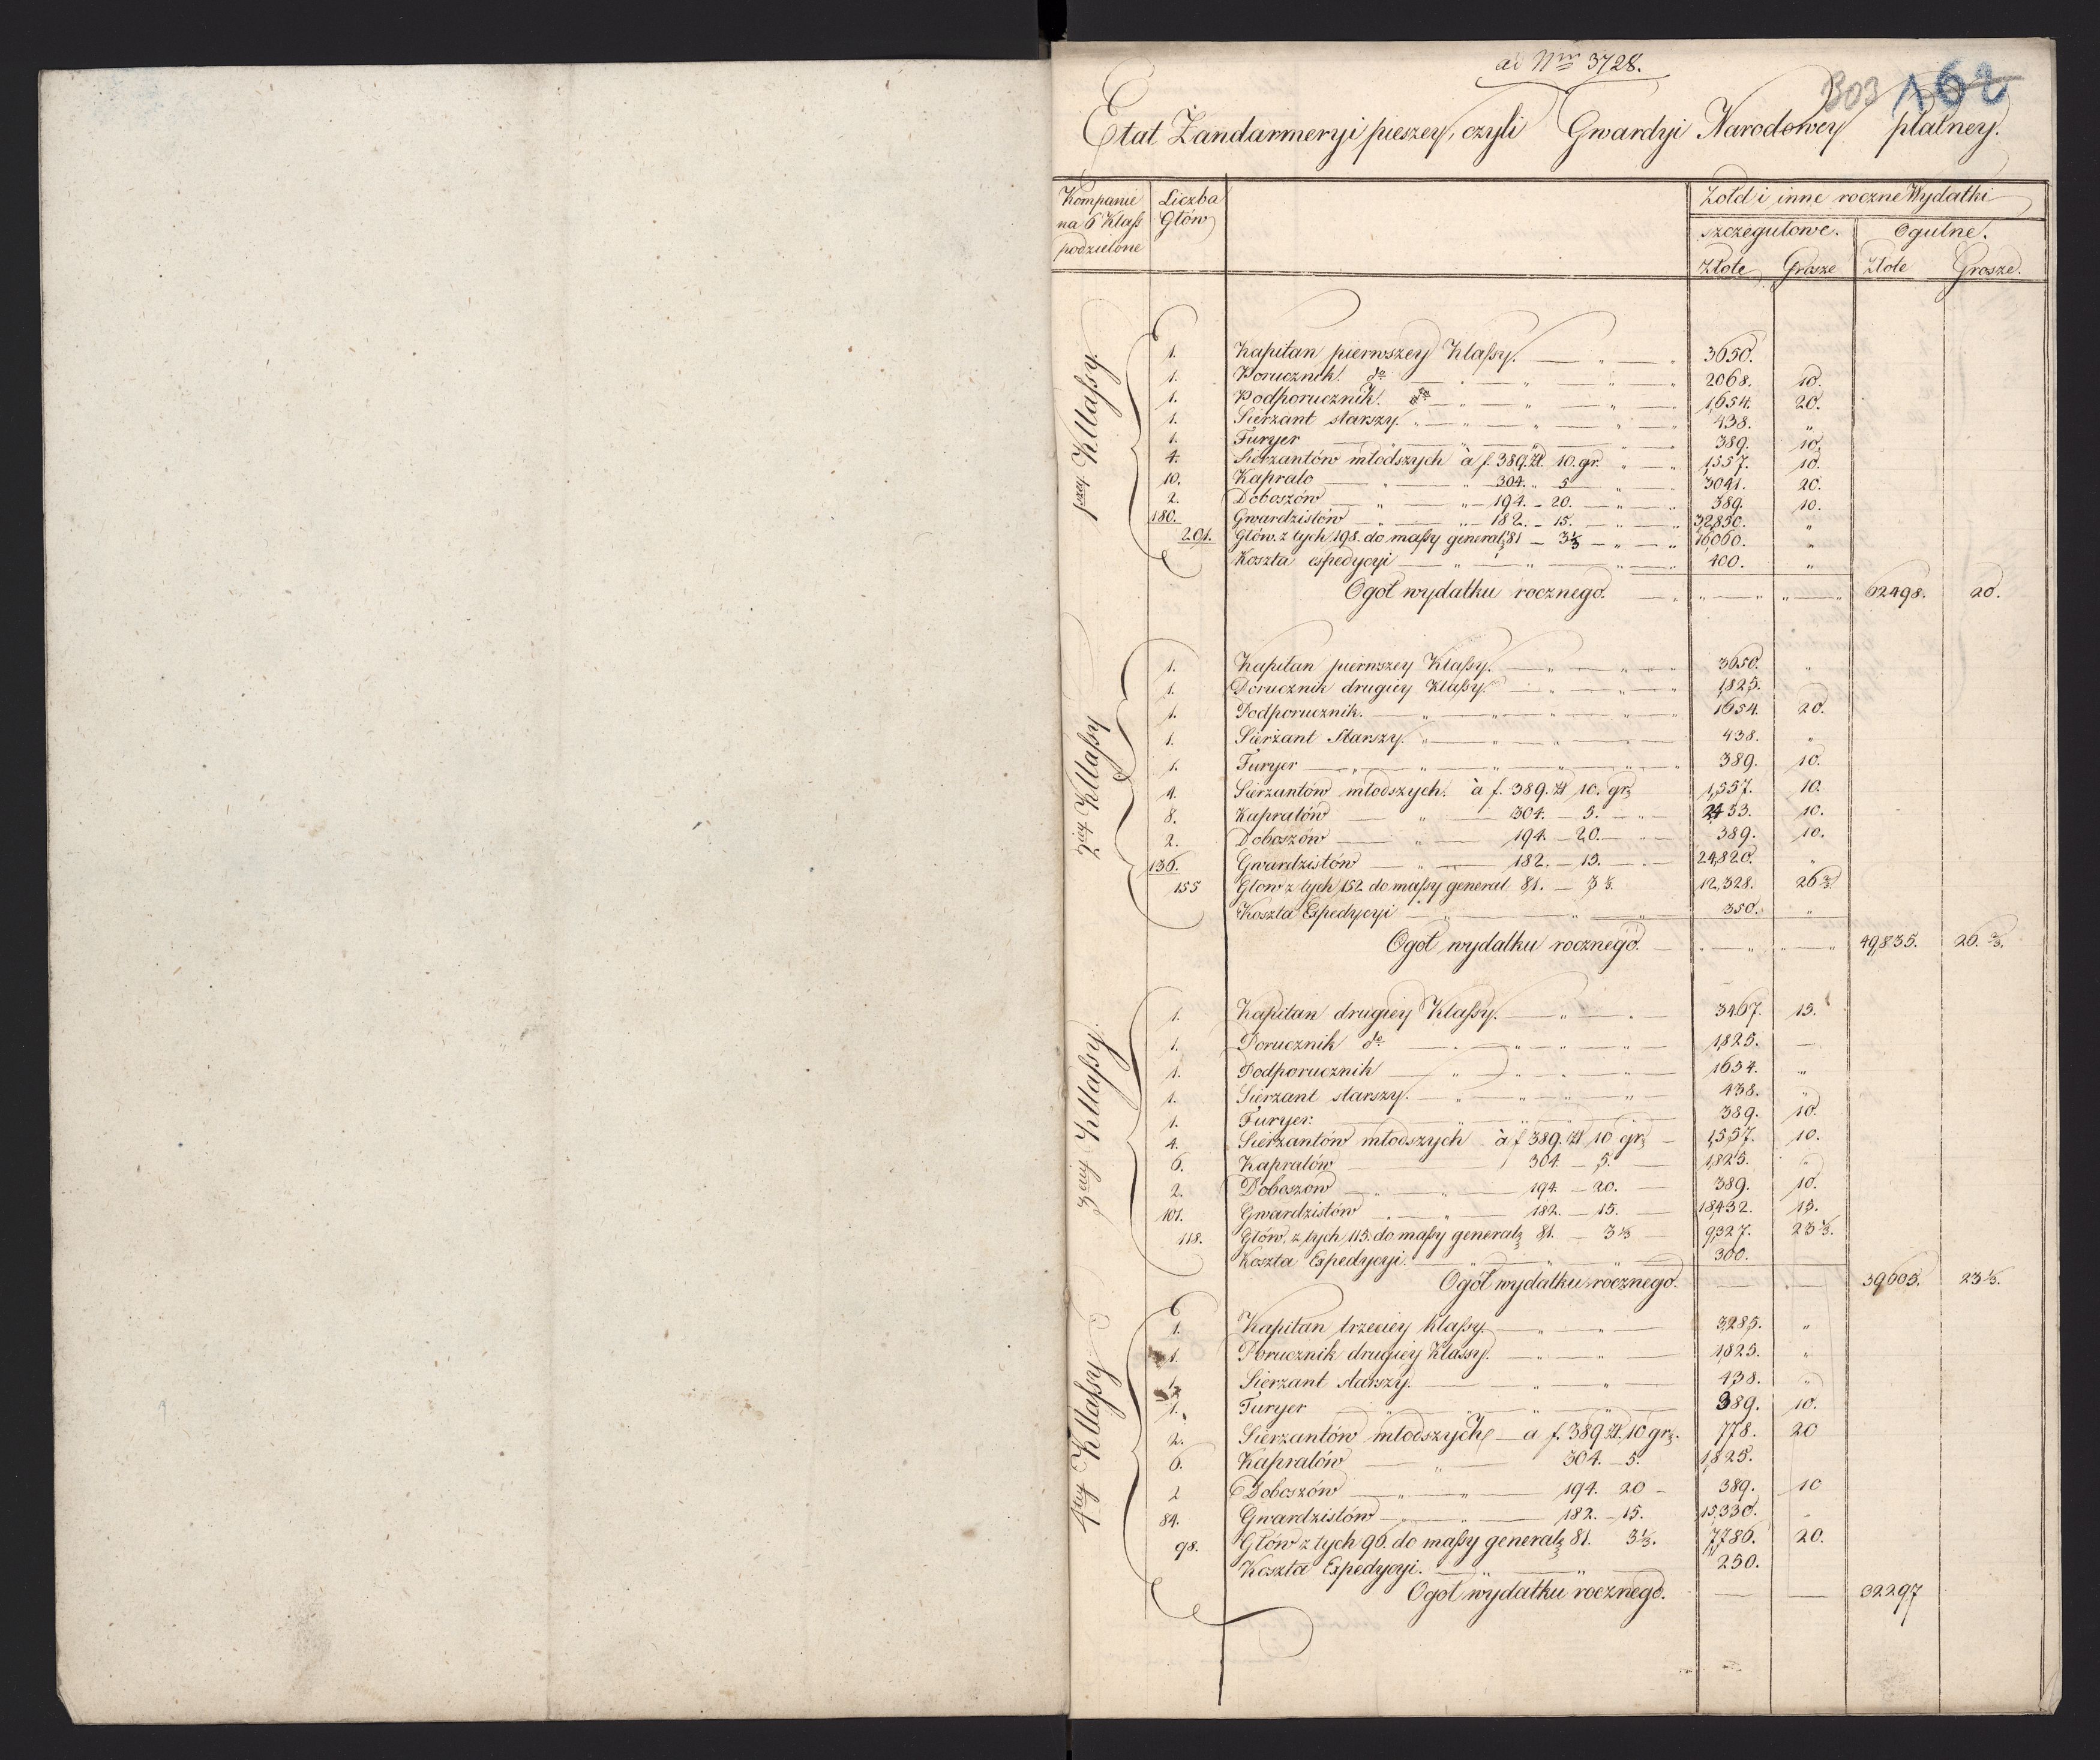 ad Nrm 3728.
303 162
Etat Żandarmeryi pieszey, czyli Gwardyi Narodowey płatney.
Kompanie na 6 Klass podzielone | Liczba Głów | Żołd i inne roczne Wydatki
szczegulowe. | Ogulne.
Złote | Grosze | Złote | Grosze.
1szey Klassy.
1. Kapitan pierwszey Klassy. 3650.
1. Porucznik. do 2068. 10.
1. Podporucznik. do 1,654. 20.
1. Sierżant starszy. 438. "
1. Furyer 389. 10.
4. Sierżantów młodszych à f. 389. zł. 10. gr. 1,557. 10.
10. Kapralo 304. " 5 3041. 20.
2. Doboszów 194. - 20. 389. 10.
180. Gwardzistów 182. - 15. 32,850. "
201. Głów. z tych 198. do massy general. 81 - 3⅓ 16,060. "
Koszta espedycyi 400. "
Ogół wydatku rocznego. 62498. 20.
2giey Klassy
1. Kapitan pierwszey Klassy. 3650. "
1. Porucznik drugiey Klassy. 1,825.
1. Podporucznik. 1654. 20.
1. Sierżant Starszy. 438. "
1. Furyer 389. 10.
4. Sierżantów młodszych. à f. 389. zł 10. gr 1,557. 10.
8. Kapralów 304. - 5. 2433. 10.
2. Doboszów 194. - 20. 389. 10.
136. Gwardzistów 182. - 15. 24,820. "
155 Głów z tych 152. do massy general 81. - 3⅓. 12,328. 26⅔
Koszta Espedycyi 350. "
Ogół wydatku rocznego. 49,835. 26.⅔.
3ciey Klassy.
1. Kapitan drugiey Klassy. 3467. 15.
1. Porucznik do 1,825. —
1. Podporucznik 1654. "
1. Sierżant starszy. 438. "
1. Furyer. 389. 10.
4. Sierżantów młodszych à f 389. zł 10 gr 1,557. 10.
6. Kapralów 304. - 5. 1,825. "
2. Doboszów 194. - 20. 389. 10.
101. Gwardzistów 182. - 15. 18,432. 15.
118. Głów, z tych 115. do massy general 81. - 3⅓ 9,327. 23⅓.
Koszta Espedycyi. 300.
Ogół wydatku rocznego. 39605. 23⅓.
4tey Klassy
1. Kapitan trzeciey klassy. 3,285. "
1. Porucznik drugiey Klassy. 1,825. "
1. Sierżant starszy. 438. "
1. Furyer 389. 10.
2. Sierżantów młodszych à f. 389 zł. 10 gr. 778. 20
6. Kapralów 304. - 5. 1,825.
2 Doboszów 194. 20 - 389. 10
84. Gwardzistów 182. - 15. 15,330.
98. Głów z tych 96. do massy general 81. 3⅓. 7,786. 20.
Koszta Espedycyi. 250.
Ogół wydatku rocznego. 32297